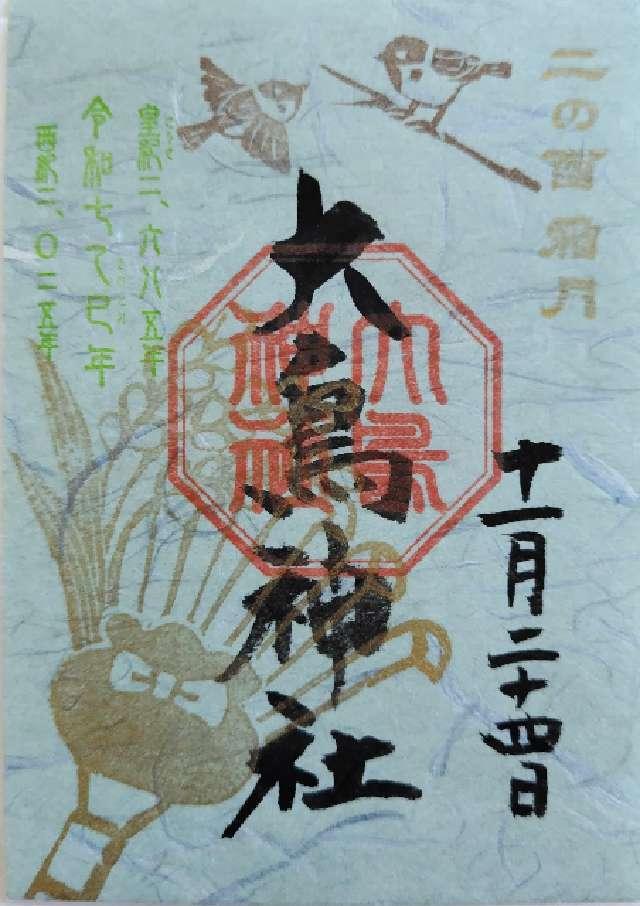 二の酉 霜月
十一月二十四日
大鳥神社
大鳥神社
皇紀二、六八五年
令和七乙巳年
西暦二、〇二五年